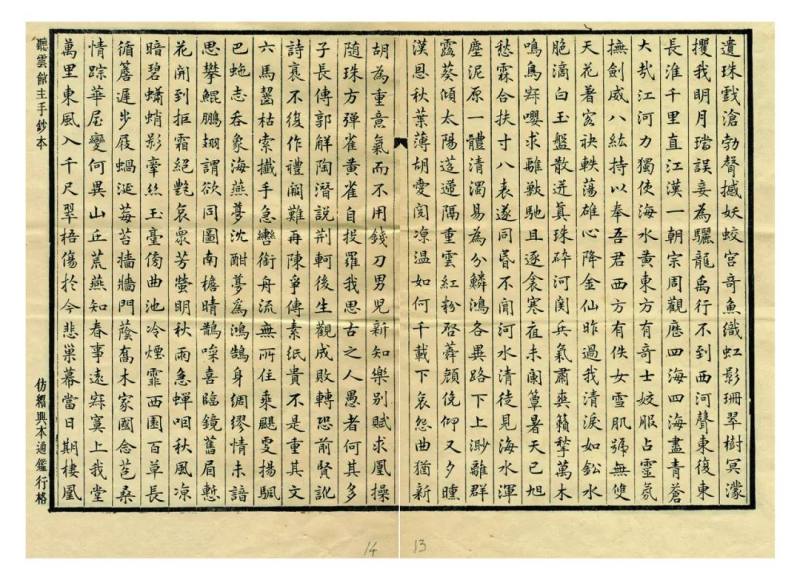 遺珠戲滄勃聲撼妖蛟宮奇魚織虹影珊翠樹冥濛
攫我明月璫誤妾為驪龍禹行不到西河聲東復東
長淮千里直江漢一朝宗周觀歷四海四海盡青蒼
大哉江河力獨使海水黃東方有奇士姣服占靈氛
撫劍威八紘持以奉吾君西方有佚女雪肌號無雙
天花著宏袂軼蕩雄心降金仙昨過我清淚如鉛水
胞滴白玉盤散迸真珠碎河關兵氣肅爽籟拏萬木
鳴鳥嚶求雖歎馳且逐衾寒夜未闌簟暑天已旭
愁霖合扶寸八表遂同昏不聞河水清徒見海水渾
塵泥原一體清濁易為分鱗鴻各異路下上渺離群
露葵傾太陽迢遞隔重雲紅粉啓蕣顏俛仰又夕曛
漢恩秋葉薄胡愛閔涼溫如何千載下哀怨曲猶新
胡為重意氣而不用錢刀男兒新知樂別賦求凰操
隨珠方彈雀黃雀自投羅我思古之人愚者何其多
子長傳郭解陶潛說荊軻後生觀成敗轉恐前賢訛
詩衰不復作禮闕難再陳爭傳素紙貴不是重其文
六馬齧枯索攕手急轡銜舟流無所住乘颸雯揚颿
巴蛇志吞象海燕夢沈酣夢為鴻鵠身綢繆情未諳
思攀鯤鵬翅謂欲同圖南檐晴鵲喿喜臨鏡舊眉慙
花開到拒霜絕艷哀眾芳螢明秋雨急蟬咽秋風涼
暗碧蠨蛸影牽絲玉臺傍曲池冷煙霏西園百草長
循簷遲步屐蝸涎莓苔牆牆門蔭喬木家國念苞桑
情踪華屋變何異山丘荒燕知春事遠寂寞上我堂
萬里東風入千尺翠梧傷於今悲巢幕當日期棲凰
聽雲館主手鈔本
仿紹興本通鑑行格
14
13